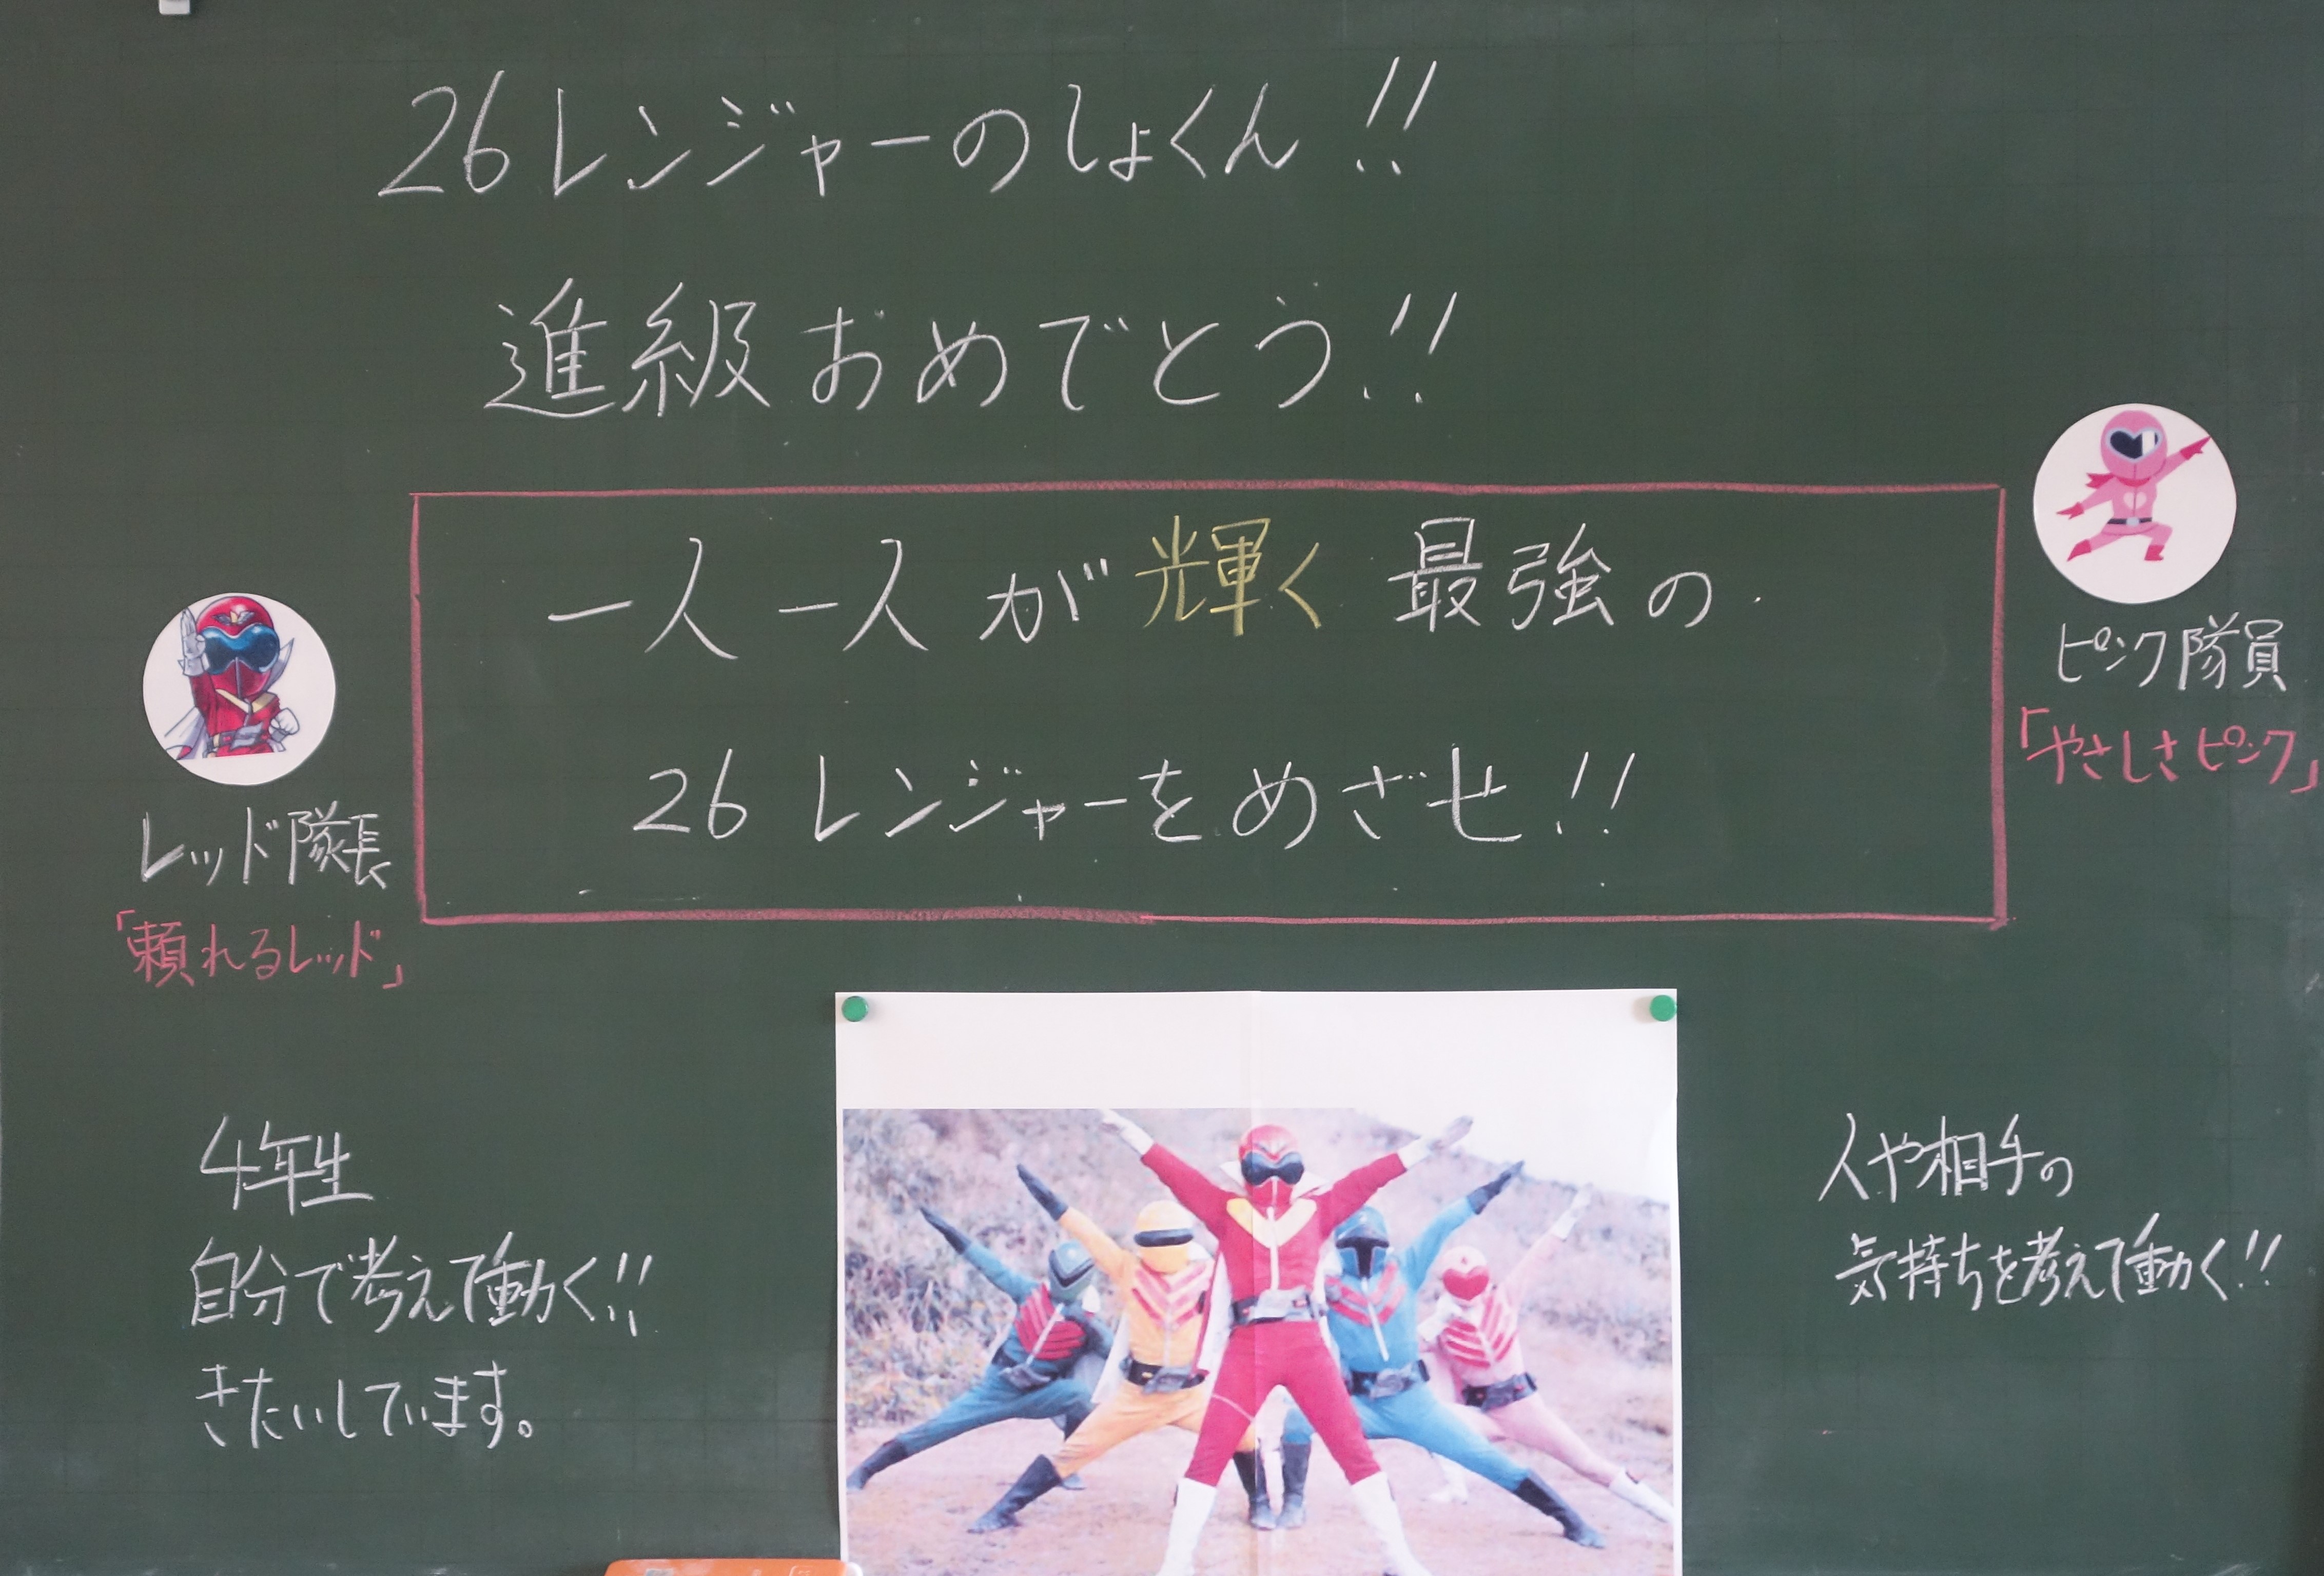 26レンジャーのしょくん!!
進級おめでとう!!
一人一人が輝く最強の
26レンジャーをめざせ!!
レッド隊長
「頼れるレッド」
ピンク隊員
「やさしさピンク」
4年生
自分で考えて動く!!
きたいしています。
人や相手の
気持ちを考えて動く!!